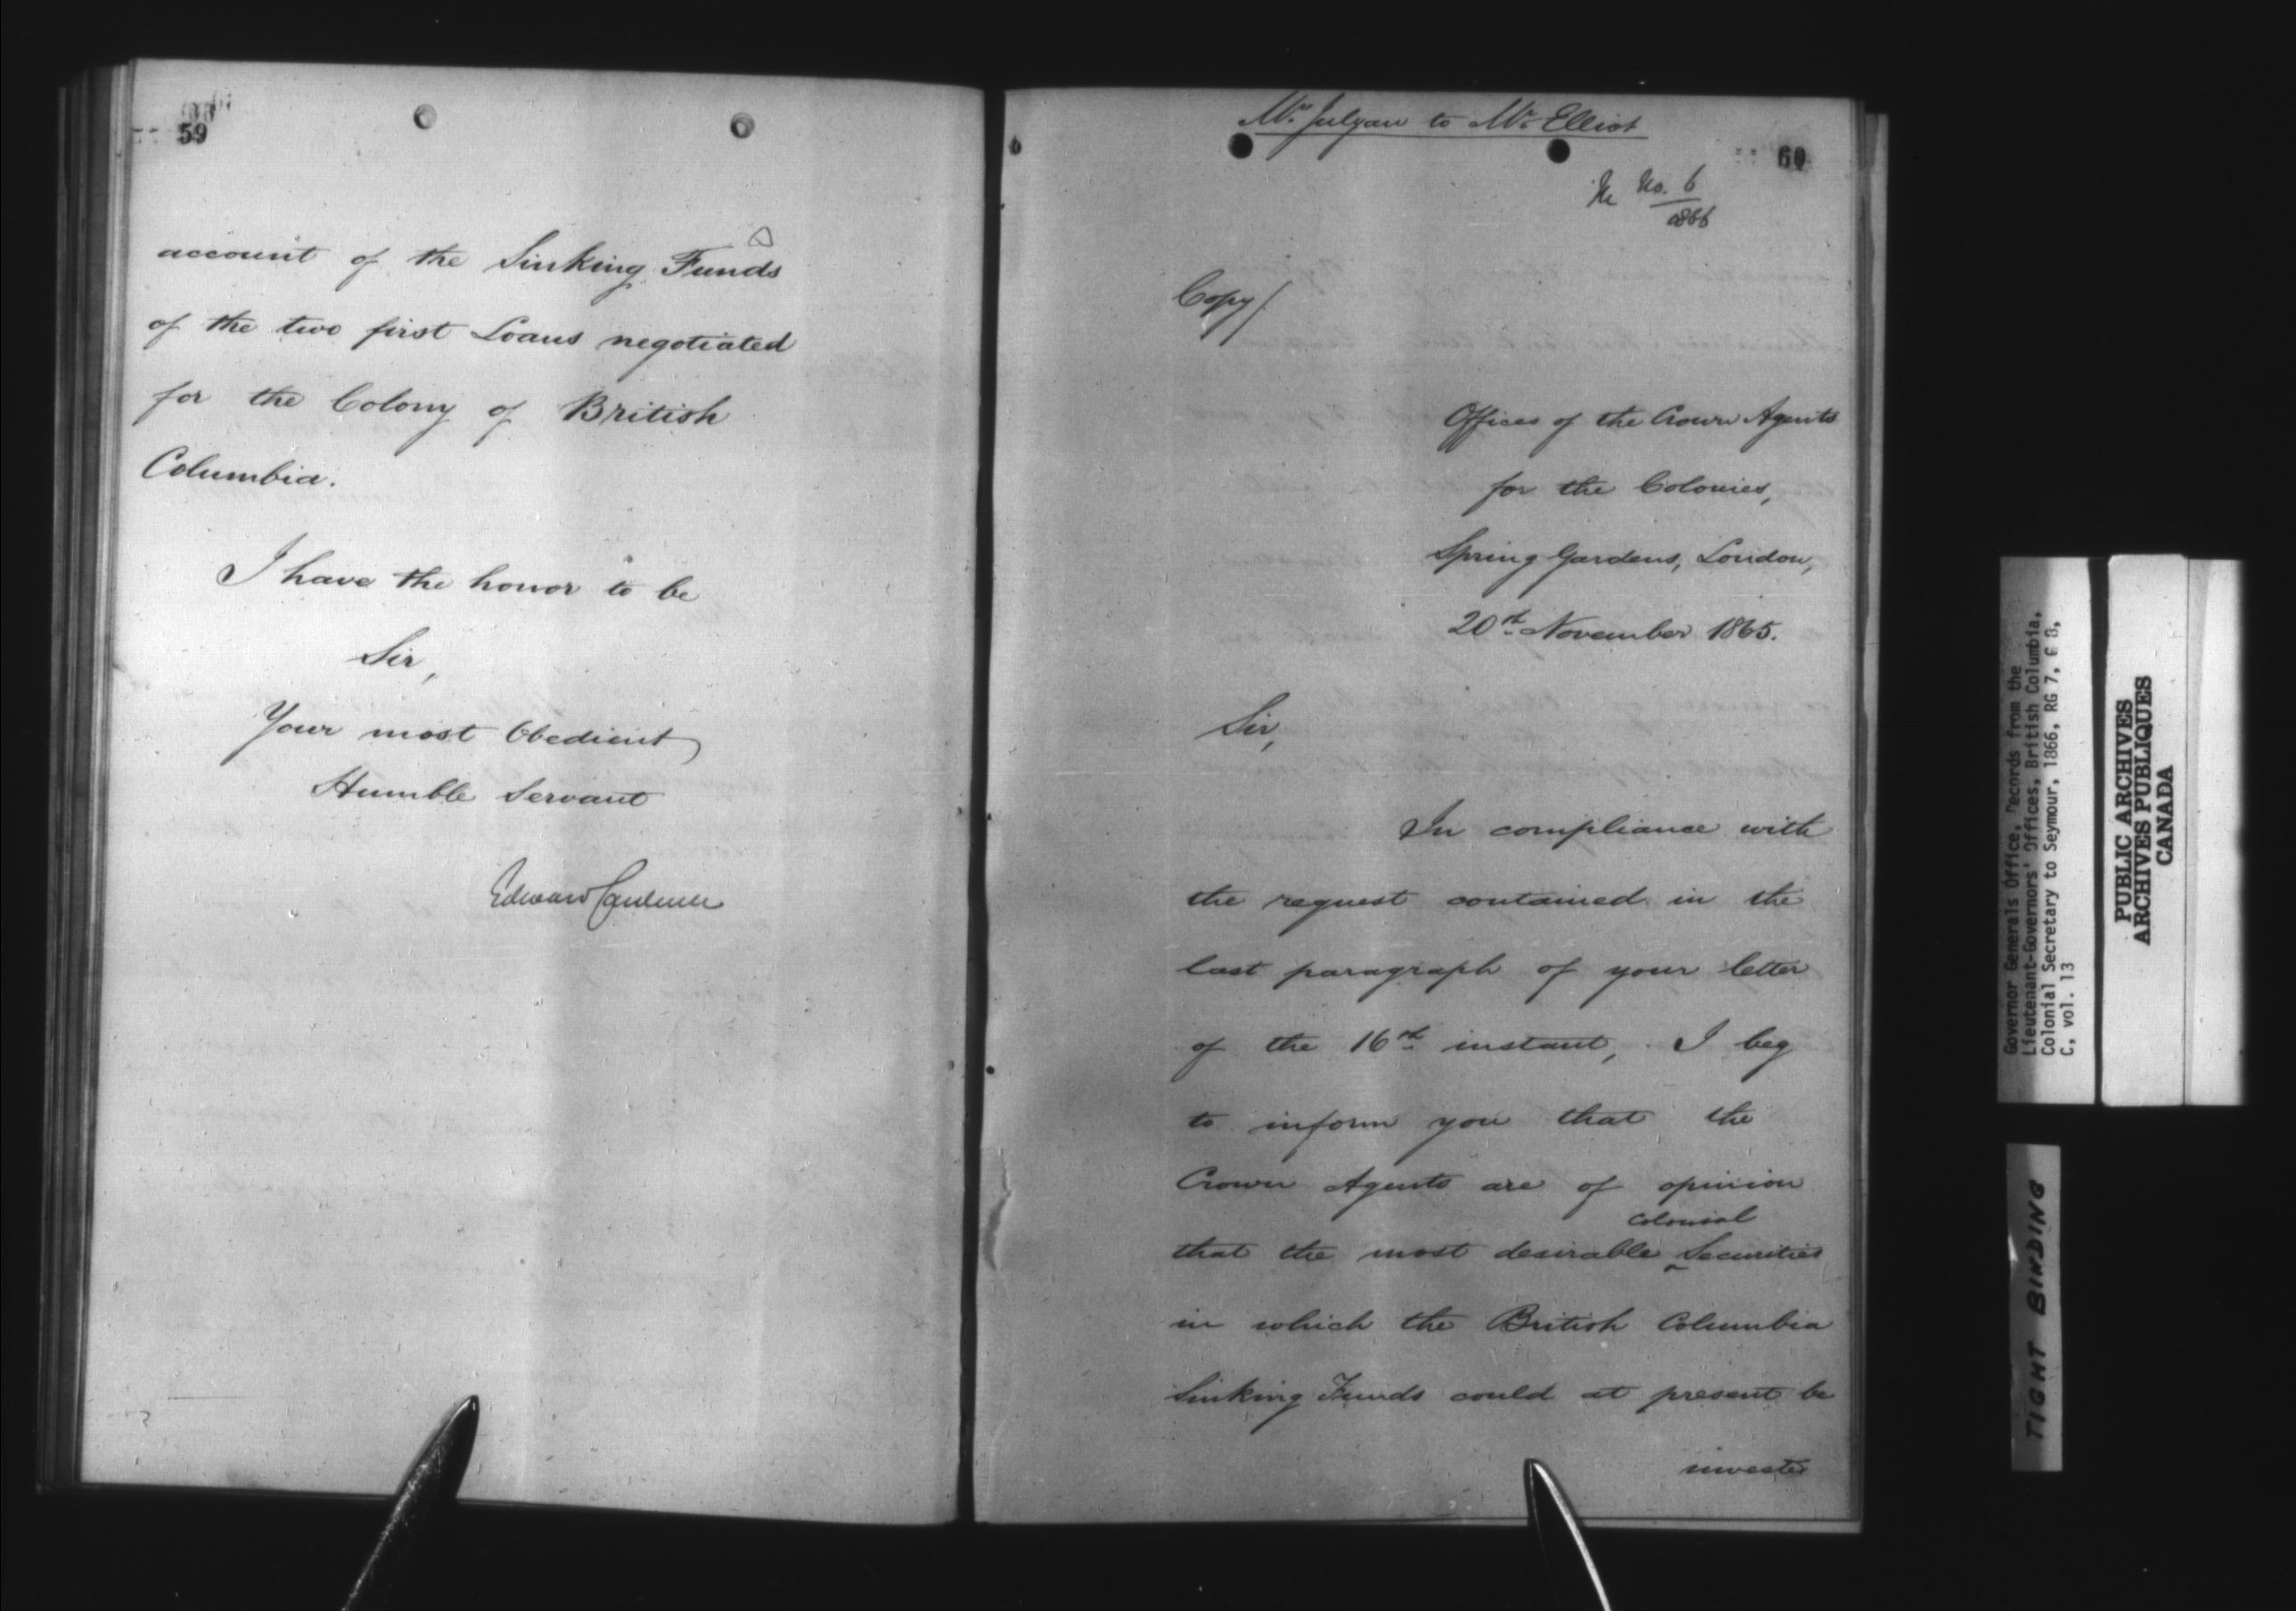 59
account of the Sinking Funds
of the two first Loans negotiated
for the Colony of British
Columbia.
I have the honor to be
Sir,
Your most Obedient
Humble Servant
Edward Cardwell
Mr. Julyan to Mr. Elliot
60
No. 6
1866
Copy/
Offices of the Crown Agents
for the Colonies,
Spring Gardens, London,
20th November 1865.
Sir,
In compliance with
the request contained in the
last paragraph of your letter
of the 16th instant, I beg
to inform you that the
Crown Agents are of opinion
colonial
that the most desirable ^ Securities
in which the British Columbia
Sinking Funds could at present be
invested
Governor Generals Office, Records from the
Lieutenant-Governors' Offices, British Columbia,
Colonial Secretary to Seymour, 1866, RG 7, G 8,
C, vol. 13
PUBLIC ARCHIVES
ARCHIVES PUBLIQUES
CANADA
TIGHT BINDING